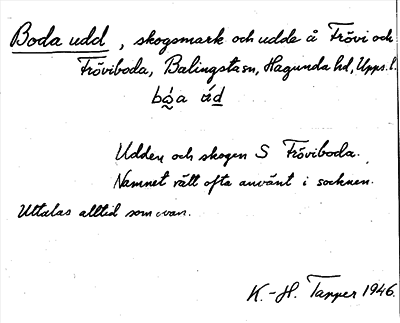 Boda udd, skogsmark och udde å Frövi och
Fröviboda, Balingsta sn, Hagunda hd, Upps. l.
Udden och skogen S Fröviboda.
Namnet rätt ofta använt i socknen.
Uttalas alltid som ovan.
K.-H. Tapper 1946.